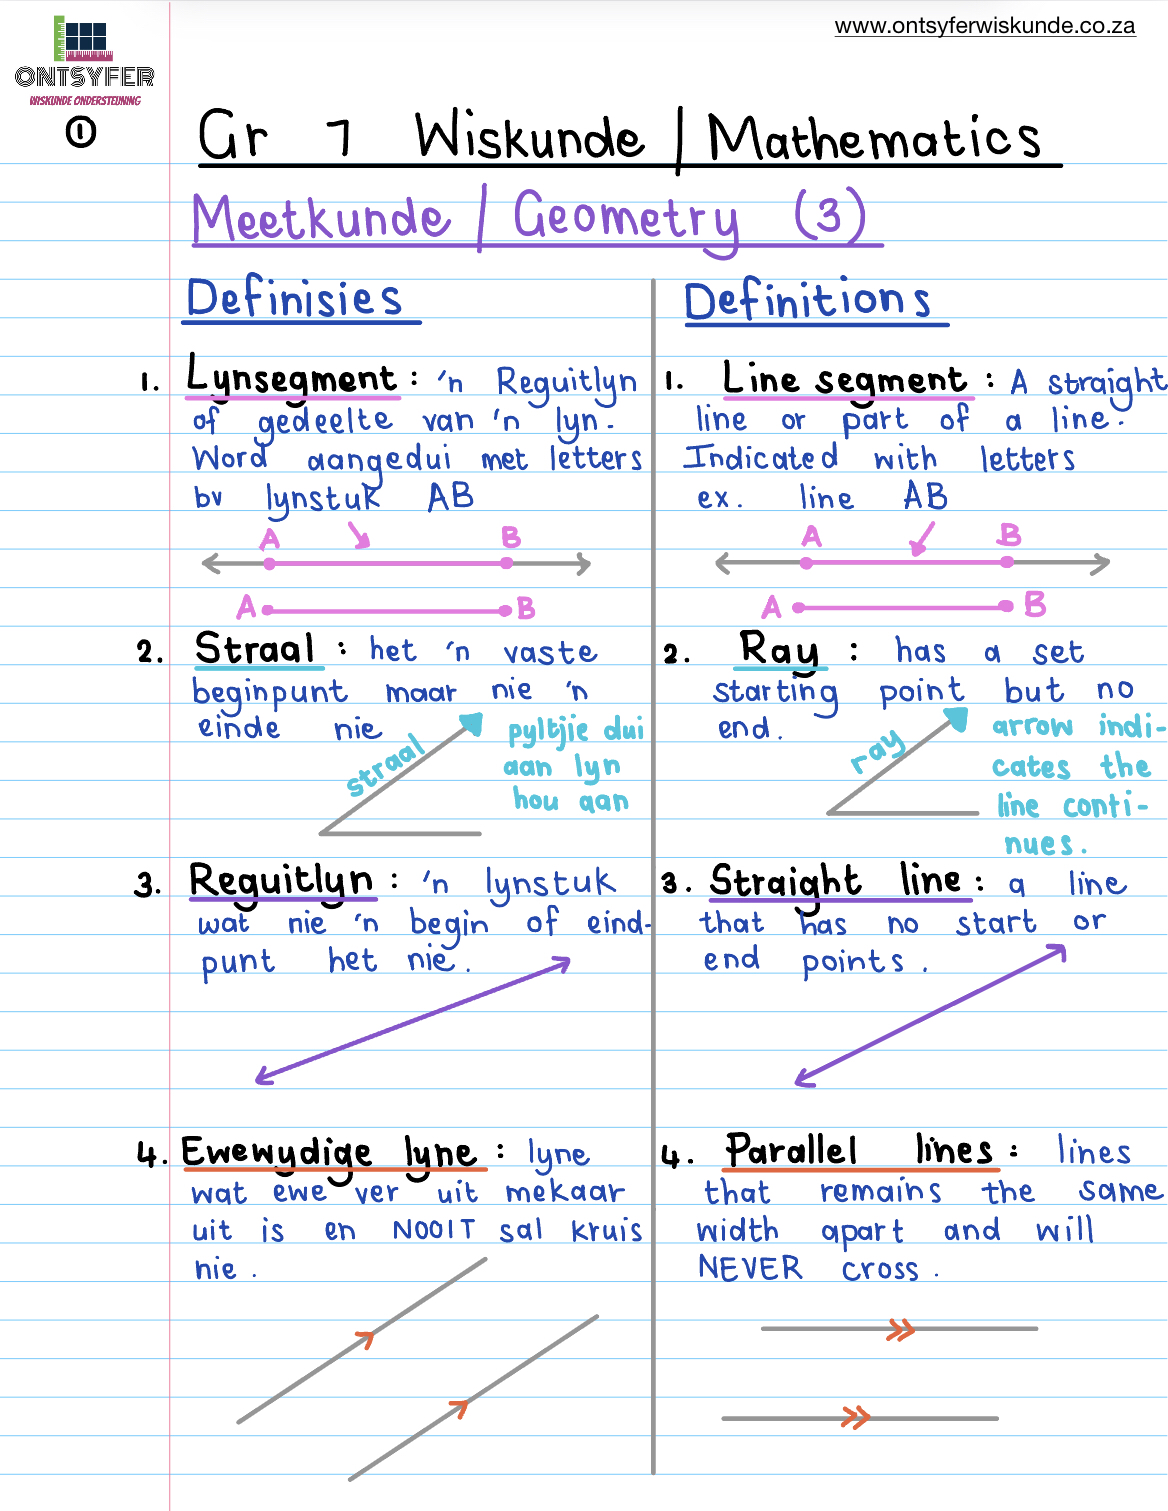 www.ontsyferwiskunde.co.za
ONTSYFER
WISKUNDE ONDERSTEUNING
1
Gr 7 Wiskunde / Mathematics
Meetkunde / Geometry (3)
Definisies
1. Lynsegment : 'n Reguitlyn
of gedeelte van 'n lyn.
Word aangedui met letters
bv lynstuk AB
A B
A B
2. Straal : het 'n vaste
beginpunt maar nie 'n
einde nie
straal
pyltjie dui
aan lyn
hou aan
3. Reguitlyn : 'n lynstuk
wat nie 'n begin of eind-
punt het nie.
4. Ewewydige lyne : lyne
wat ewe ver uit mekaar
uit is en NOOIT sal kruis
nie.
Definitions
1. Line segment : A straight
line or part of a line.
Indicated with letters
ex. line AB
A B
A B
2. Ray : has a set
starting point but no
end.
ray
arrow indi-
cates the
line conti-
nues.
3. Straight line : a line
that has no start or
end points.
4. Parallel lines : lines
that remains the same
width apart and will
NEVER cross.